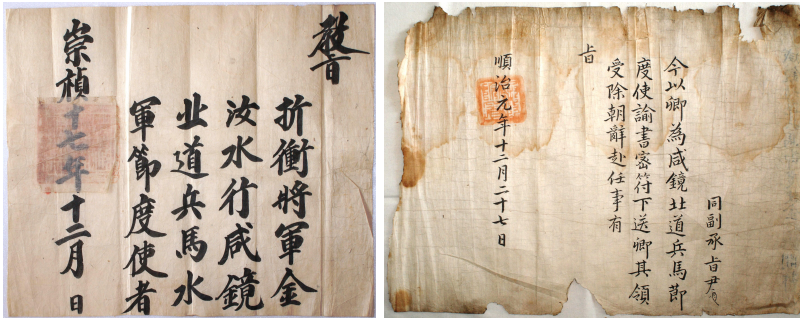 教旨
折衝將軍金
汝水行咸鏡
北道兵馬水
軍節度使者
崇禎十七年十二月 日
同副承旨尹
今以卿為咸鏡北道兵馬節
度使諭書密符下送卿其領
受除朝辭赴任事有
旨
順治元年十二月二十七日